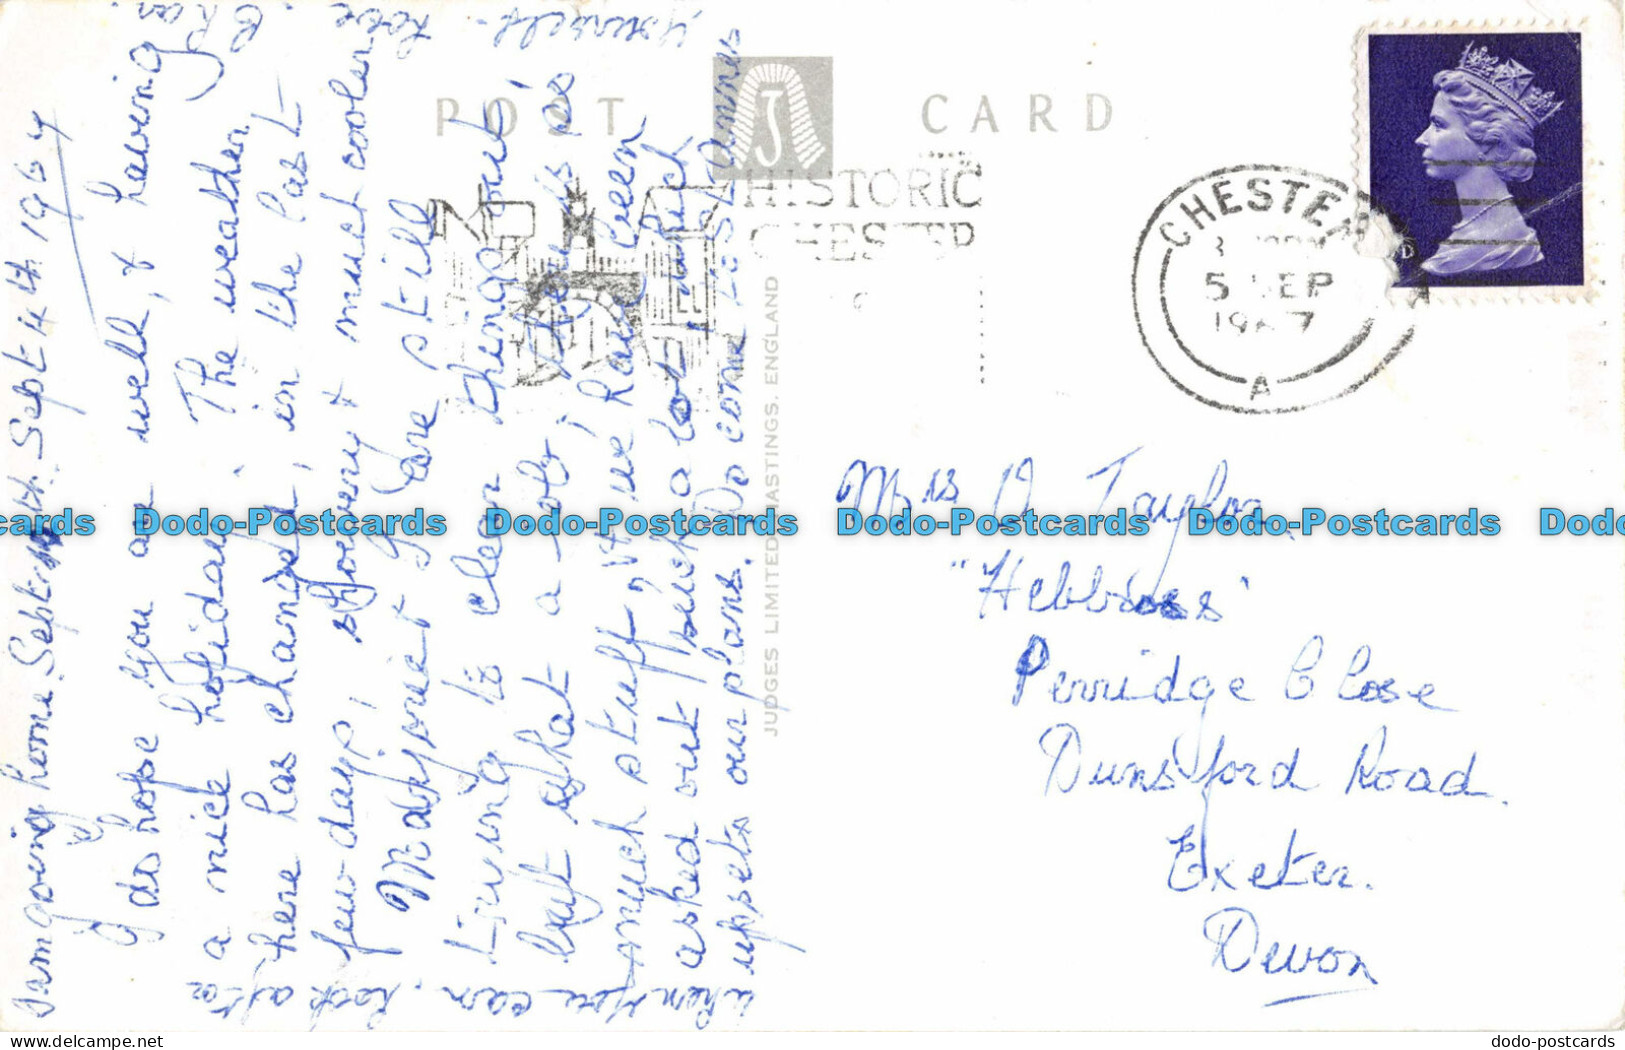 I am going home Sept 14th. Sept 4th 1967
I do hope you are well, & having
a nice holiday. The weather
here has changed, in the last
few days, showery & much cooler
Marjorie & I are still
trying to clear things out,
but what a job; there is so
much stuff, & we have been
asked out such a lot, which
upsets our plans. Do come to St Annes
when you can. Look after
yourself. love
POST CARD
HISTORIC
CHESTER
CHESTER
5 SEP
1967
A
JUDGES LIMITED, HASTINGS, ENGLAND
Mrs D Taylor
Perridge Close
Dunsford Road.
Exeter.
Devon
Dodo-Postcards Dodo-Postcards Dodo-Postcards Dodo-Postcards
www.delcampe.net
dodo-postcards